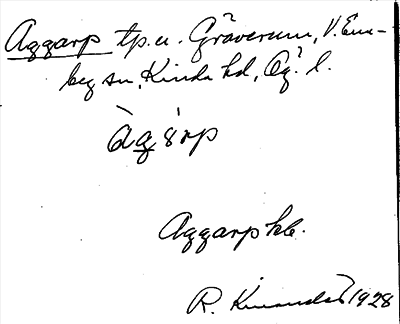 Aggarp tp.u. Gröverum, V. En-
eby sn, Kinda hd, Ög. l.
àg̲ạrp
Aggarp kbl.
R. Kinander 1928